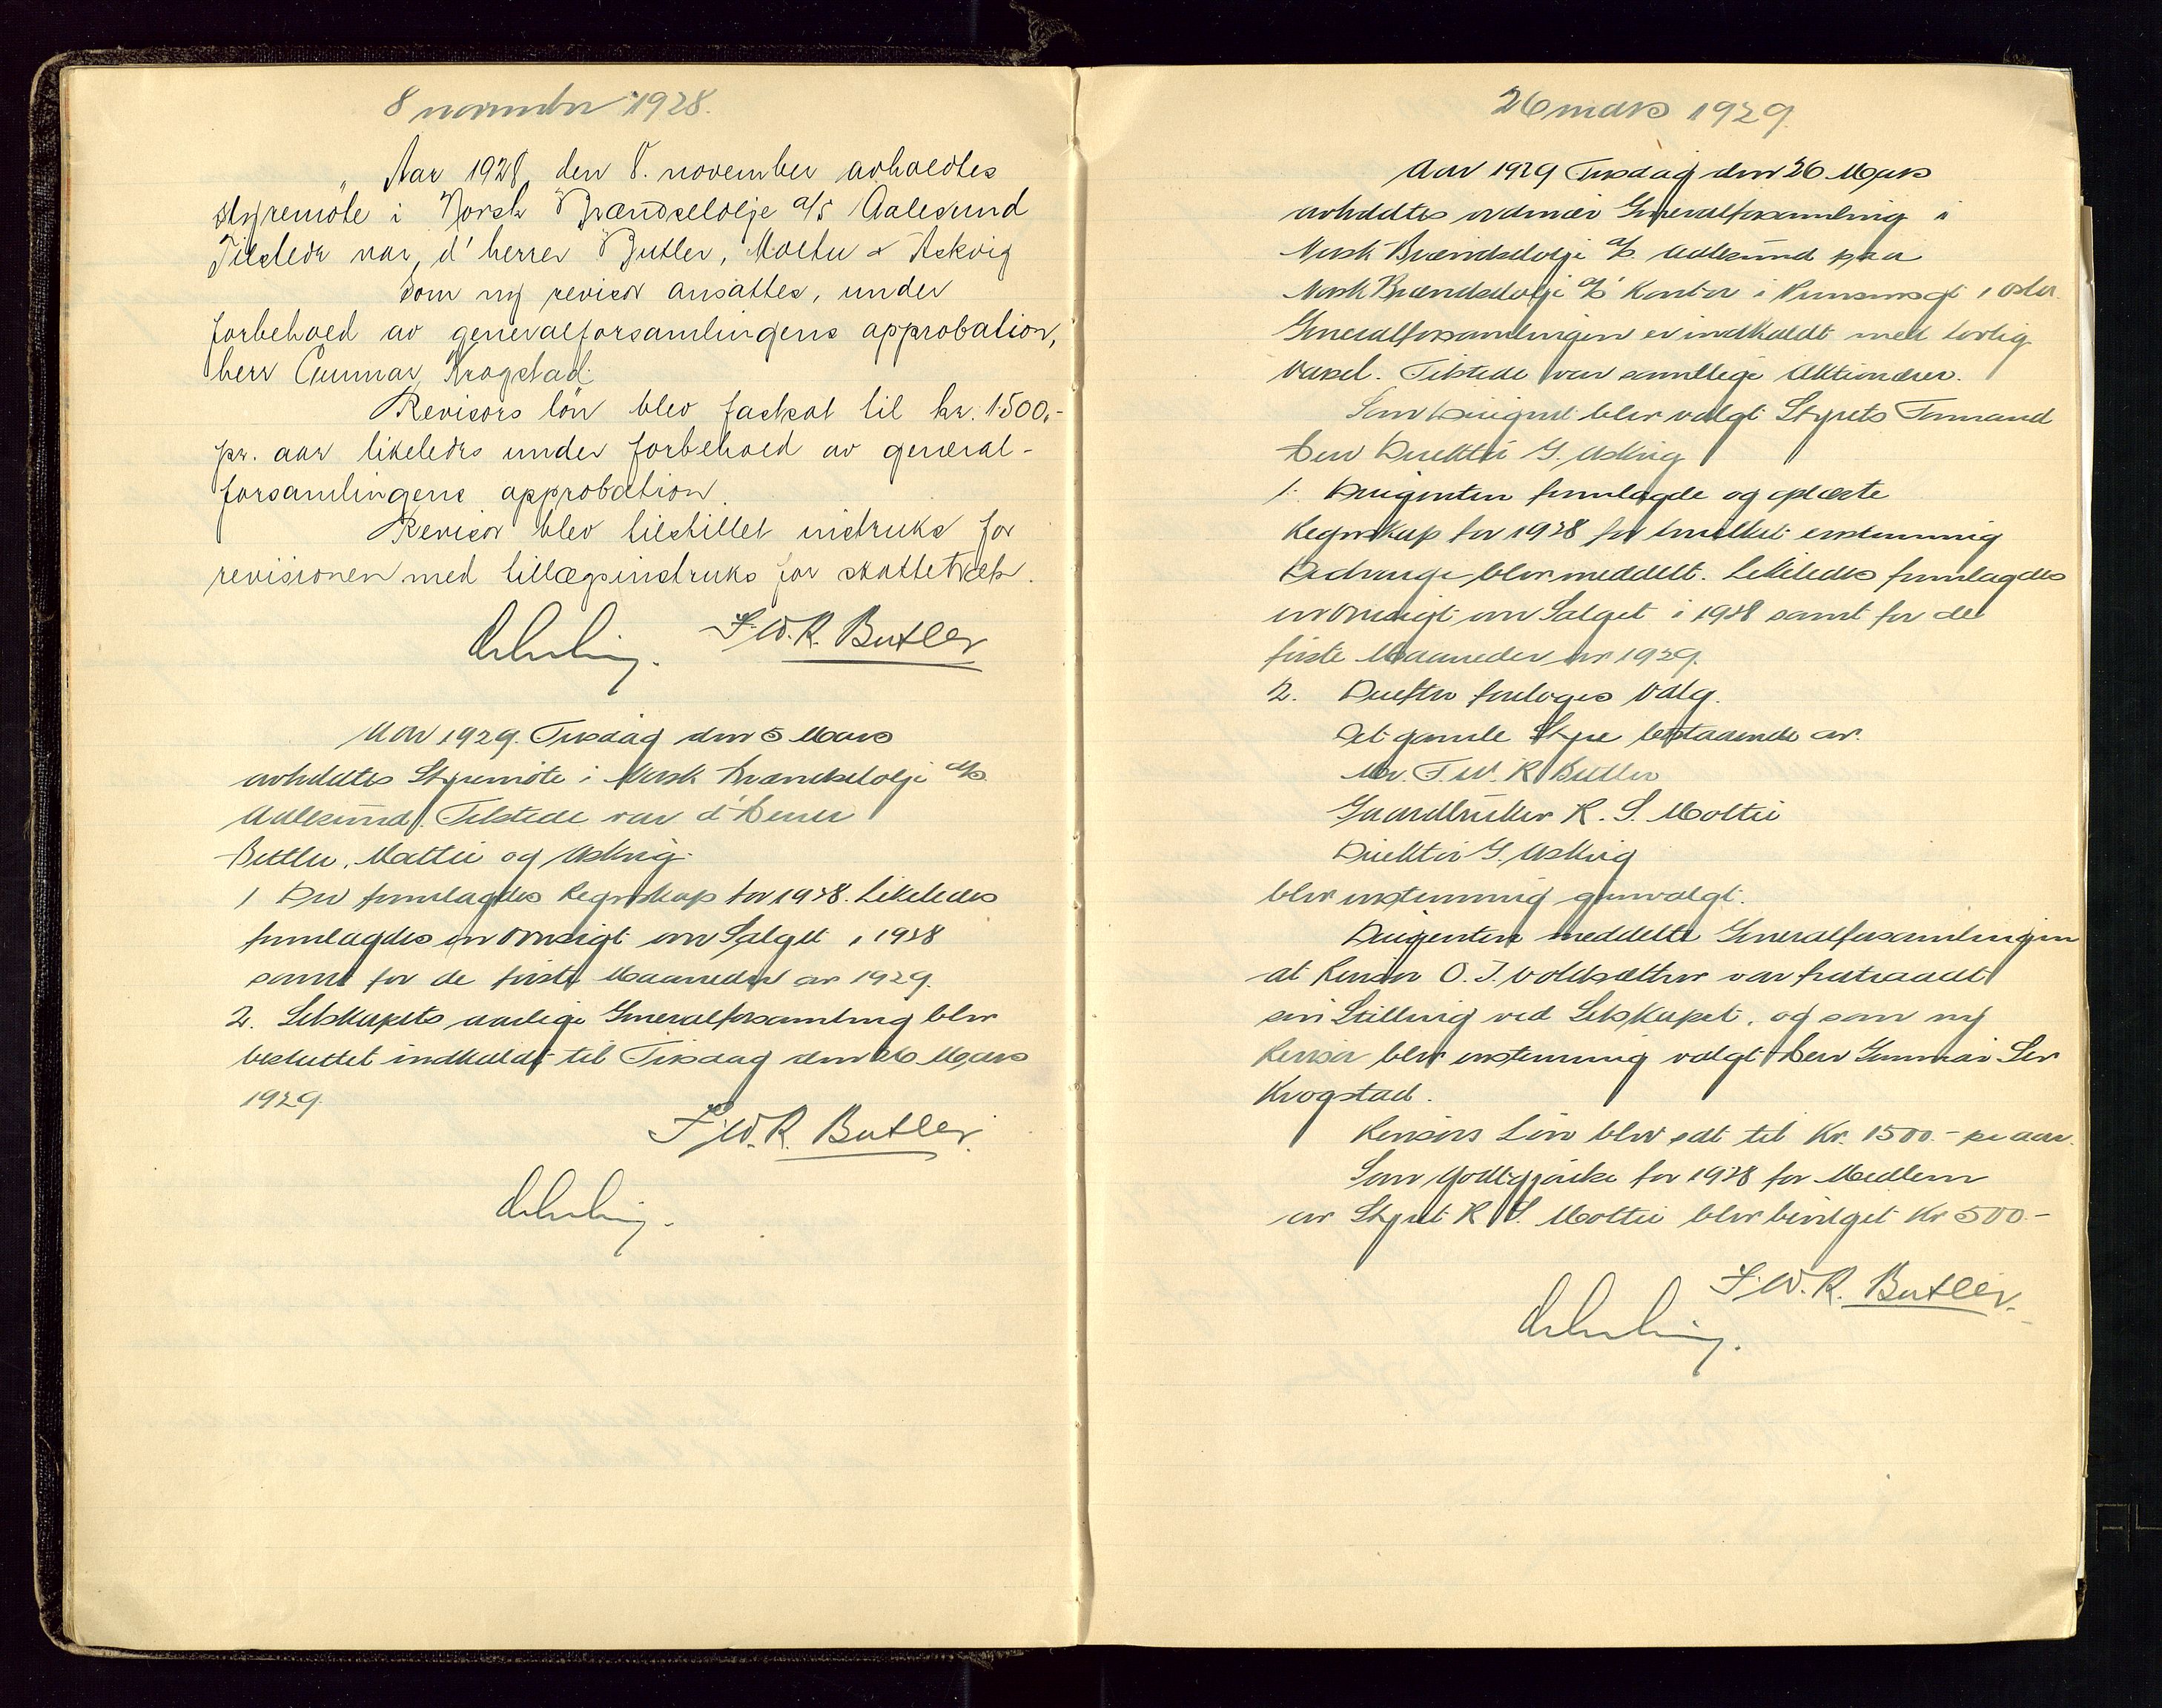 8 november 1928.
Aar 1928, den 8. november avholdtes
styremöte i Norsk Brændselolje a/s Aalesund
Tilstede var, d' herrer Butler, Moltu & Askvig
Som ny revisor ansattes, under
forbehold av generalforsamlingens approbation,
herr Gunnar Krogstad.
Revisors lön blev fastsat til kr. 1500,-
pr. aar likeledes under forbehold av general-
forsamlingens approbation.
Revisor blev tilstillet instruks for
revisionen med tillægsinstruks for skattetræk.
F.W.R. Butler
Aar 1929. Tirsdag den 5 Mars
avholdtes Styremöte i Norsk Brændselolje a/s
Aalesund. Tilstede var d' Herrer
Butler, Moltu og Askvig.
1 Der fremlagdes Regnskap for 1928. Likeledes
fremlagdes en Oversigt over Salget i 1928
samt for de förste Maaneder av 1929.
2. Selskapets aarlige Generalforsamling blev
besluttet indkaldt til Tirsdag den 26 Mars
1929.
F.W.R. Butler.
26 mars 1929.
Aar 1929 Tirsdag den 26 Mars
avholdtes ordinær Generalforsamling i
Norsk Brændselolje a/s Aalesund paa
Norsk Brændselolje a/s' Kontor i i Oslo.
Generalforsamlingen er indkaldt med lovlig
Varsel. Tilstede var samtlige Aktionærer.
Som Dirigent blev valgt Styrets Formand
Herr Direktör G. Askvig
1. Dirigenten fremlagde og oplæste
Regnskap for 1928 for hvilket enstemmig
Decharge blev meddelt. Likeledes fremlagdes
en Oversigt over Salget i 1928 samt for de
förste Maaneder av 1929.
2. Derefter foretoges Valg.
Det gamle Styre bestaaende av:
Mr. F.W.R. Butler
Gaardbruker R. S. Moltu
Direktör G. Askvig
blev enstemmig gjenvalgt.
Dirigenten meddelte Generalforsamlingen
at Revisor O. J. Voldsæther var fratraadt
sin Stilling ved Selskapet, og som ny
Revisor blev enstemmig valgt Herr Gunnar
Krogstad.
Revisors Lön blev sat til Kr. 1500.- pr aar.
Som Godtgjörelse for 1928 for Medlem
av Styret R. S. Moltu blev bevilget Kr 500.-
F.W.R. Butler.